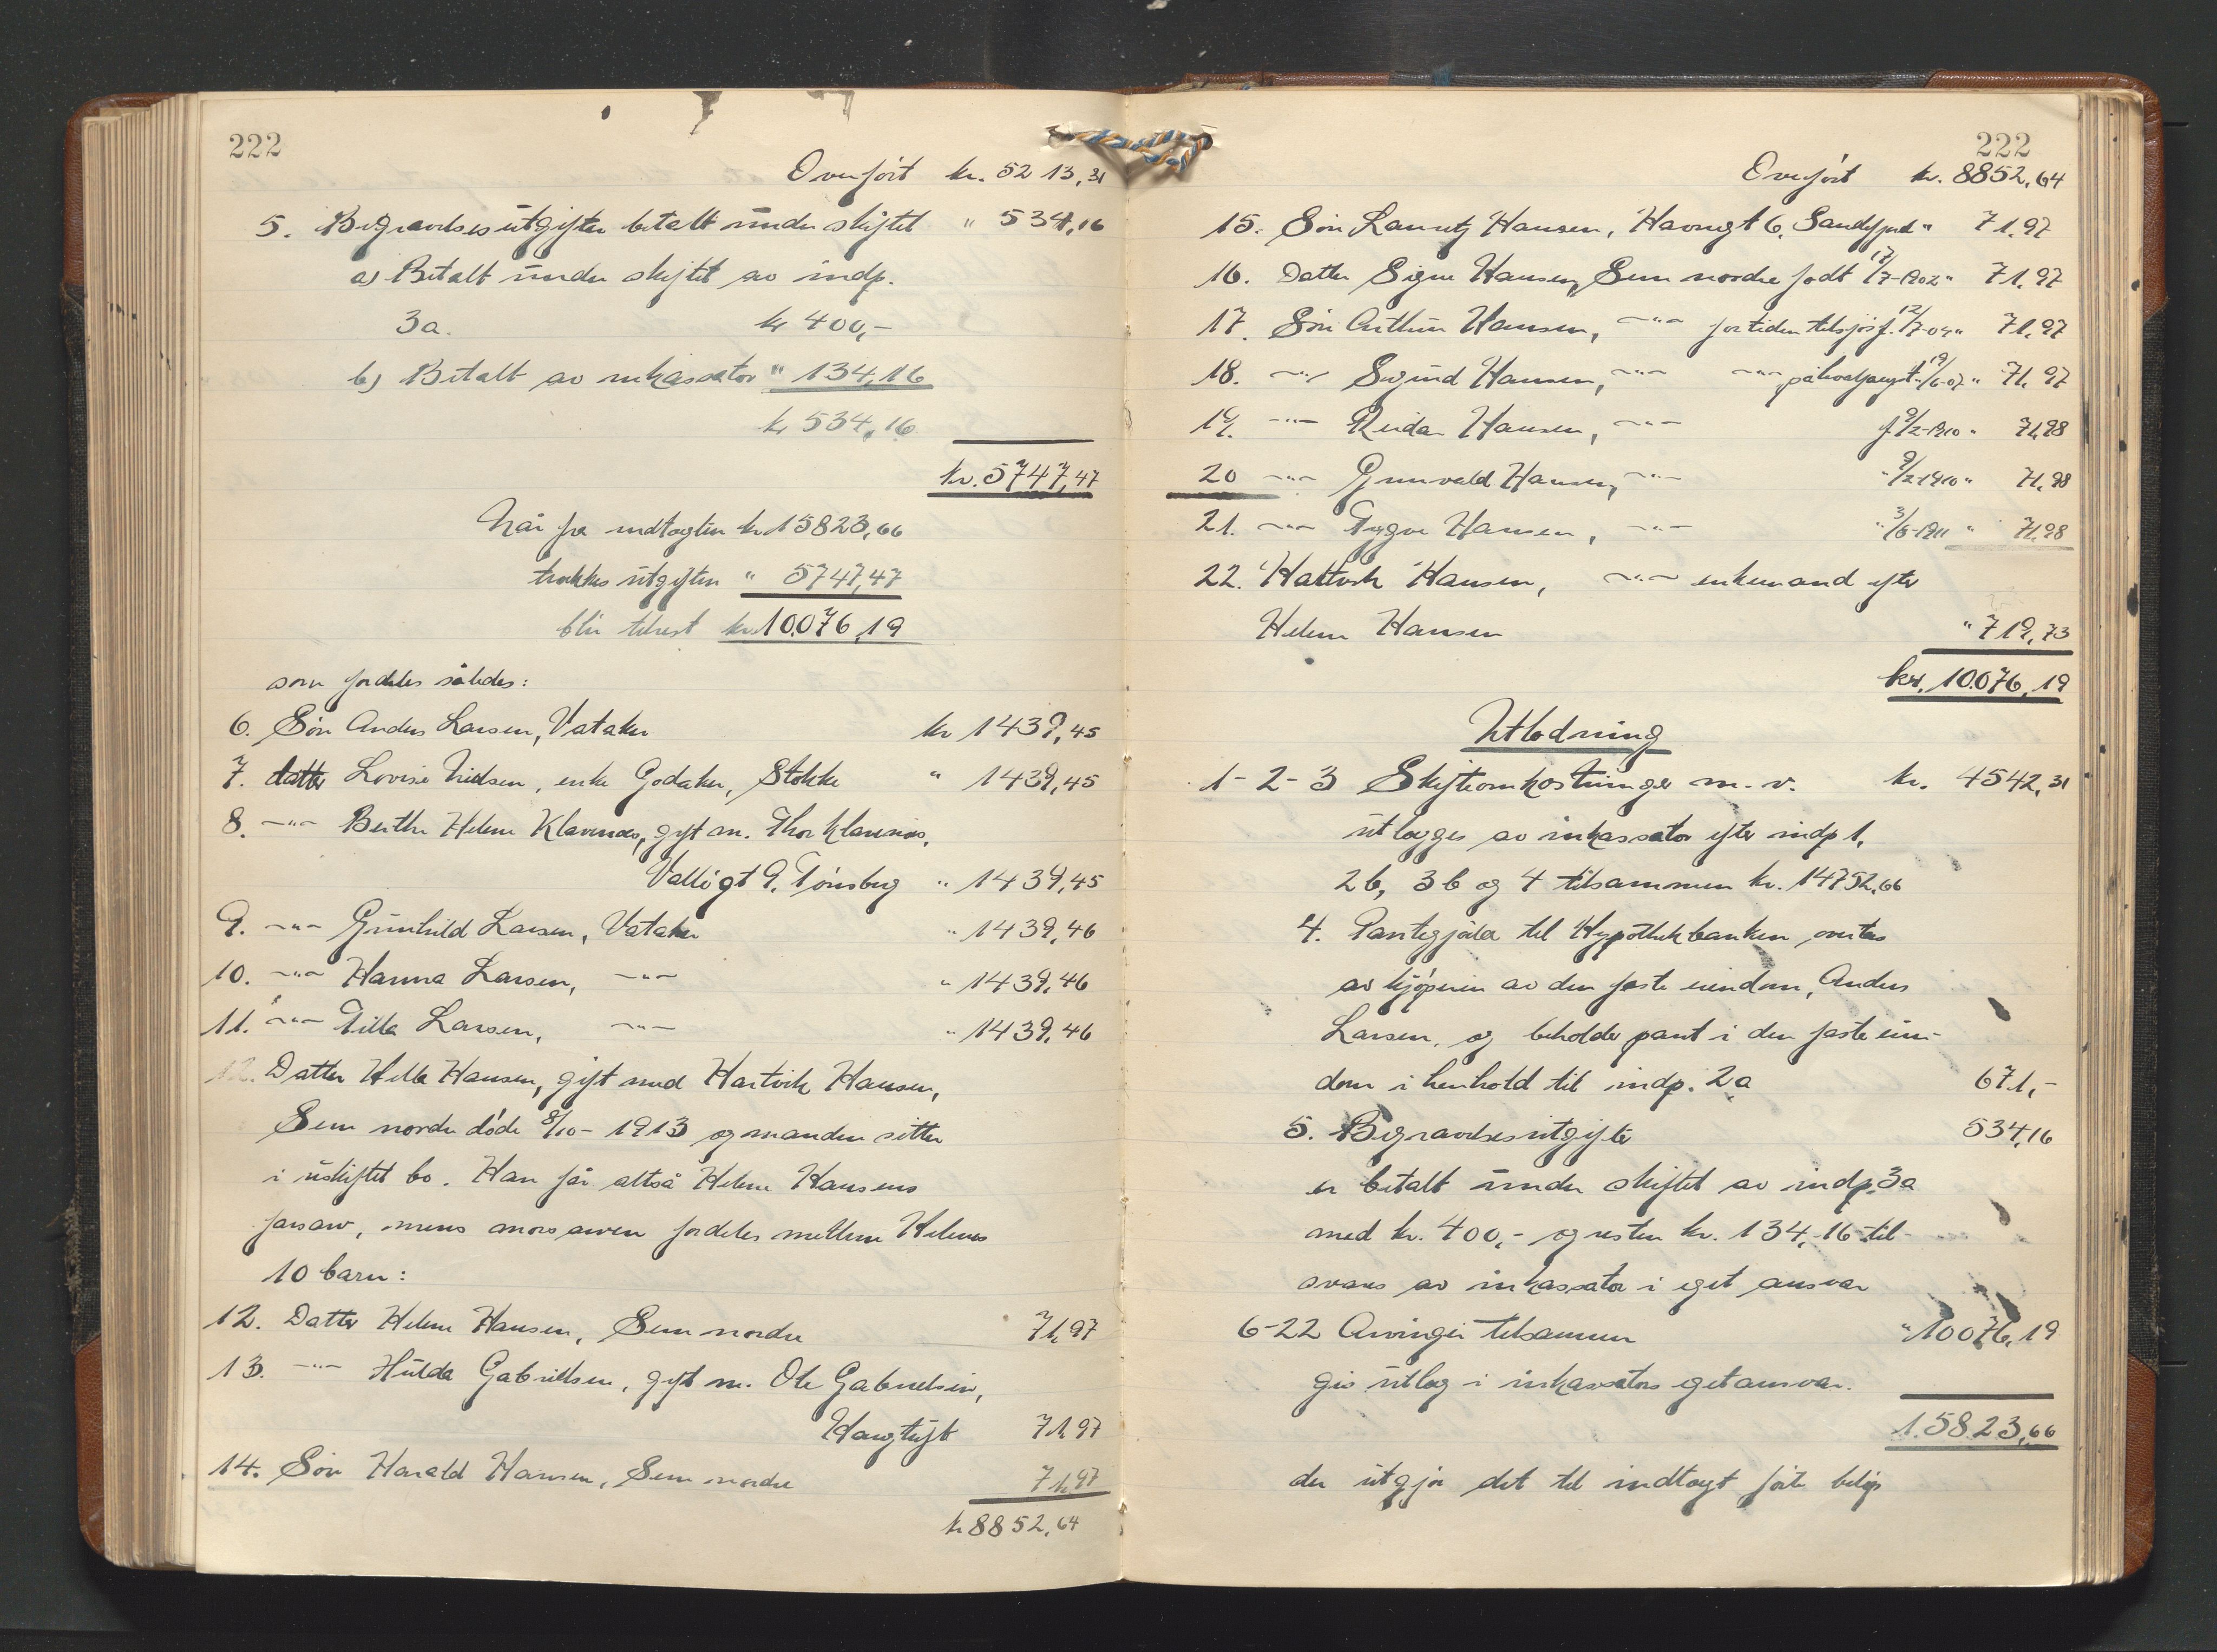 222
Overført kr. 5213,31
5. Begravelsesutgifter betalt under skiftet " 534,16
a) Betalt under skiftet av indp.
3a. kr 400,-
b) Betalt av inkassator " 134,16
kr 534,16
kr. 5747,47
Når fra indtægten kr 15823,66
trækkes utgiften " 5747,47
blir tilrest kr 10.076,19
som fordeles således:
6. Søn Anders Larsen, Vataker kr 1439,45
7. datter Lovise Nielsen, enke Godaker, Stokke " 1439,45
8. -"- Berthe Helene Klavenæs, gift m. Thor Klavenæs,
Valløgt 9, Tønsberg " 1439,45
9. -"- Gunhild Larsen, Vataker " 1439,46
10. -"- Hanna Larsen, -"- " 1439,46
11. -"- Tilla Larsen, -"- " 1439,46
12. Datter Helle Hansen, gift med Hartvik Hansen,
Sem nordre døde 8/10-1913 og manden sitter
i uskiftet bo. Han får altså Helene Hansens
farsarv, mens morsarven fordeles mellem Helenes
10 barn:
12. Datter Helene Hansen, Sem nordre 71,97
13. -"- Hulda Gabrielsen, gift m. Ole Gabrielsen,
71,97
14. Søn Harald Hansen, Sem nordre 71,97
kr 8852,64
222
Overført kr. 8852,64
15. Søn Lauritz Hansen, Havnegt 6, Sandefjord " 71,97
16. Datter Signe Hansen, Sem nordre født 17/7-1902 " 71,97
17. Søn Arthur Hansen, -"- for tiden tilsjøs f. 12/7-04 " 71,97
18. -"- Sigurd Hansen, -"- -"- på hvalfangst " 19/6-07 " 71,97
19. -"- Reidar Hansen, -"- f. 9/2-1910 " 71,98
20 -"- Gunvald Hansen, -"- " 9/2-1910 " 71,98
21. -"- Trygve Hansen, -"- " 3/6-1911 " 71,98
22. Hartvik Hansen, -"- enkemand efter
Helene Hansen " 719,73
kr. 10.076,19
Utlodning
1-2-3 Skifteomkostninger m.v. kr. 4542,31
utlægges av inkassator efter indp 1,
2b, 3b og 4 tilsammen kr. 14752,66
4. Pantegjæld til Hypothekbanken overtas
av kjøperen av den faste eiendom, Anders
Larsen, og beholder pant i den faste eien-
dom i henhold til indp. 2a 671,-
5. Begravelsesutgifter 534,16
er betalt under skiftet av indp. 3a
med kr. 400,- og resten kr. 134,16 til-
svares av inkassator i eget ansvar
6-22 Arvinger tilsammen " 10076,19
gis utlæg i inkassators eget ansvar.
15823,66
der utgjør det til indtægt førte beløp